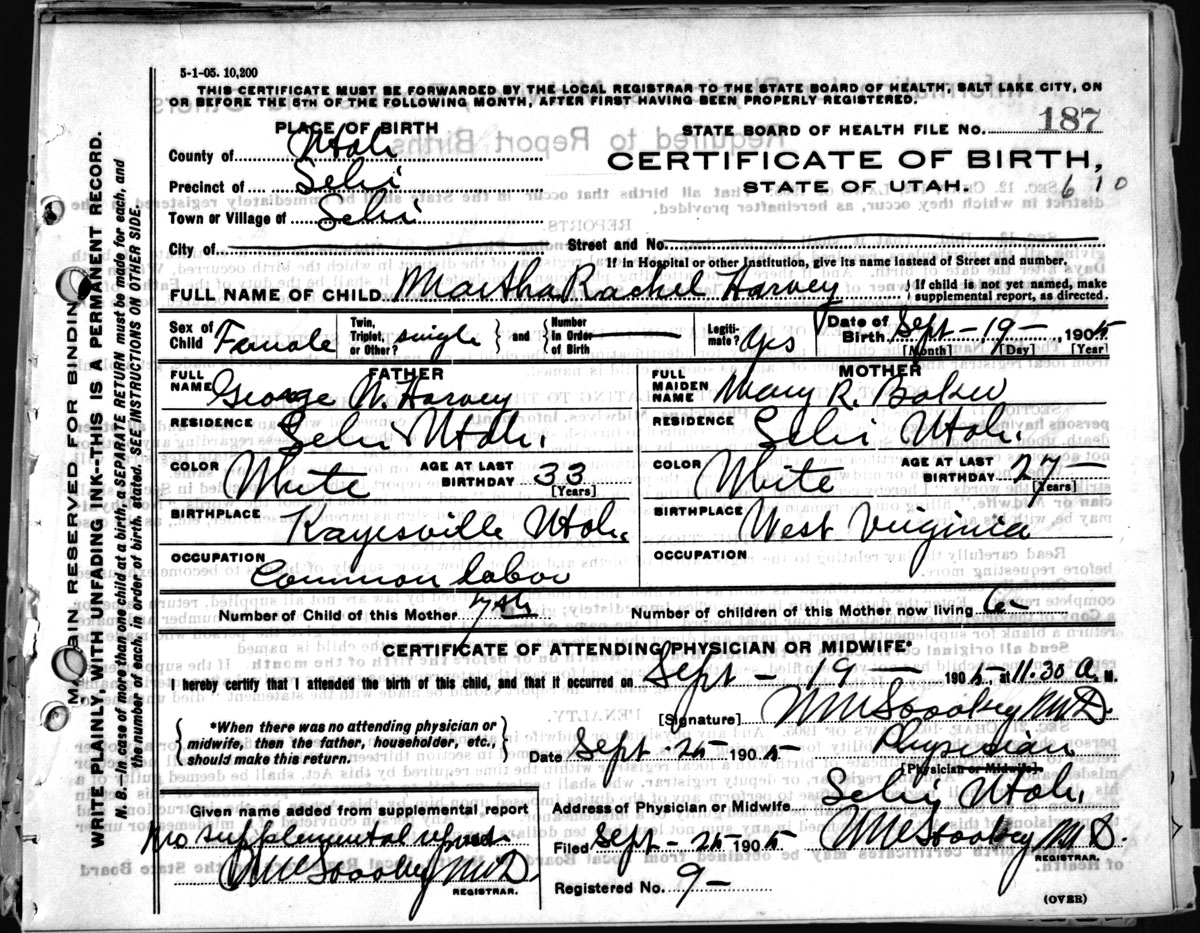 5-1-05. 10,200
THIS CERTIFICATE MUST BE FORWARDED BY THE LOCAL REGISTRAR TO THE STATE BOARD OF HEALTH, SALT LAKE CITY, ON
OR BEFORE THE 5TH OF THE FOLLOWING MONTH, AFTER FIRST HAVING BEEN PROPERLY REGISTERED.
PLACE OF BIRTH
STATE BOARD OF HEALTH FILE NO. 187
County of Utah
CERTIFICATE OF BIRTH,
Precinct of Lehi
STATE OF UTAH. 610
Town or Village of Lehi
City of Street and No.
If in Hospital or other Institution, give its name instead of Street and number.
FULL NAME OF CHILD Martha Rachel Harvey } If child is not yet named, make supplemental report, as directed.
Sex of Child Female Twin, Triplet, or Other? single } and { Number in Order of Birth Legitimate? Yes Date of Birth Sept - 19 - , 1905
[Month] [Day] [Year]
FATHER MOTHER
FULL NAME George W. Harvey FULL MAIDEN NAME Mary R. Baker
RESIDENCE Lehi Utah. RESIDENCE Lehi Utah.
COLOR White AGE AT LAST BIRTHDAY 33 [Years] COLOR White AGE AT LAST BIRTHDAY 27 - [Years]
BIRTHPLACE Kaysville Utah. BIRTHPLACE West Virginia
OCCUPATION Common labor OCCUPATION
Number of Child of this Mother 7th Number of children of this Mother now living 6-
CERTIFICATE OF ATTENDING PHYSICIAN OR MIDWIFE*
I hereby certify that I attended the birth of this child, and that it occurred on Sept - 19 - 1905, at 11.30 a. M.
{ *When there was no attending physician or midwife, then the father, householder, etc., should make this return. }
[Signature] M.D.
Date Sept - 25 - 1905 Physician
[Physician or Midwife]
Address of Physician or Midwife Lehi, Utah.
Given name added from supplemental report
No supplemental report
M.D.
REGISTRAR.
Filed Sept - 25 - 1905 M.D.
REGISTRAR.
Registered No. 9-
(OVER)
MARGIN RESERVED FOR BINDING
WRITE PLAINLY, WITH UNFADING INK--THIS IS A PERMANENT RECORD.
N. B.—In case of more than one child at a birth, a SEPARATE RETURN must be made for each, and
the number of each, in order of birth, stated. SEE INSTRUCTIONS ON OTHER SIDE.